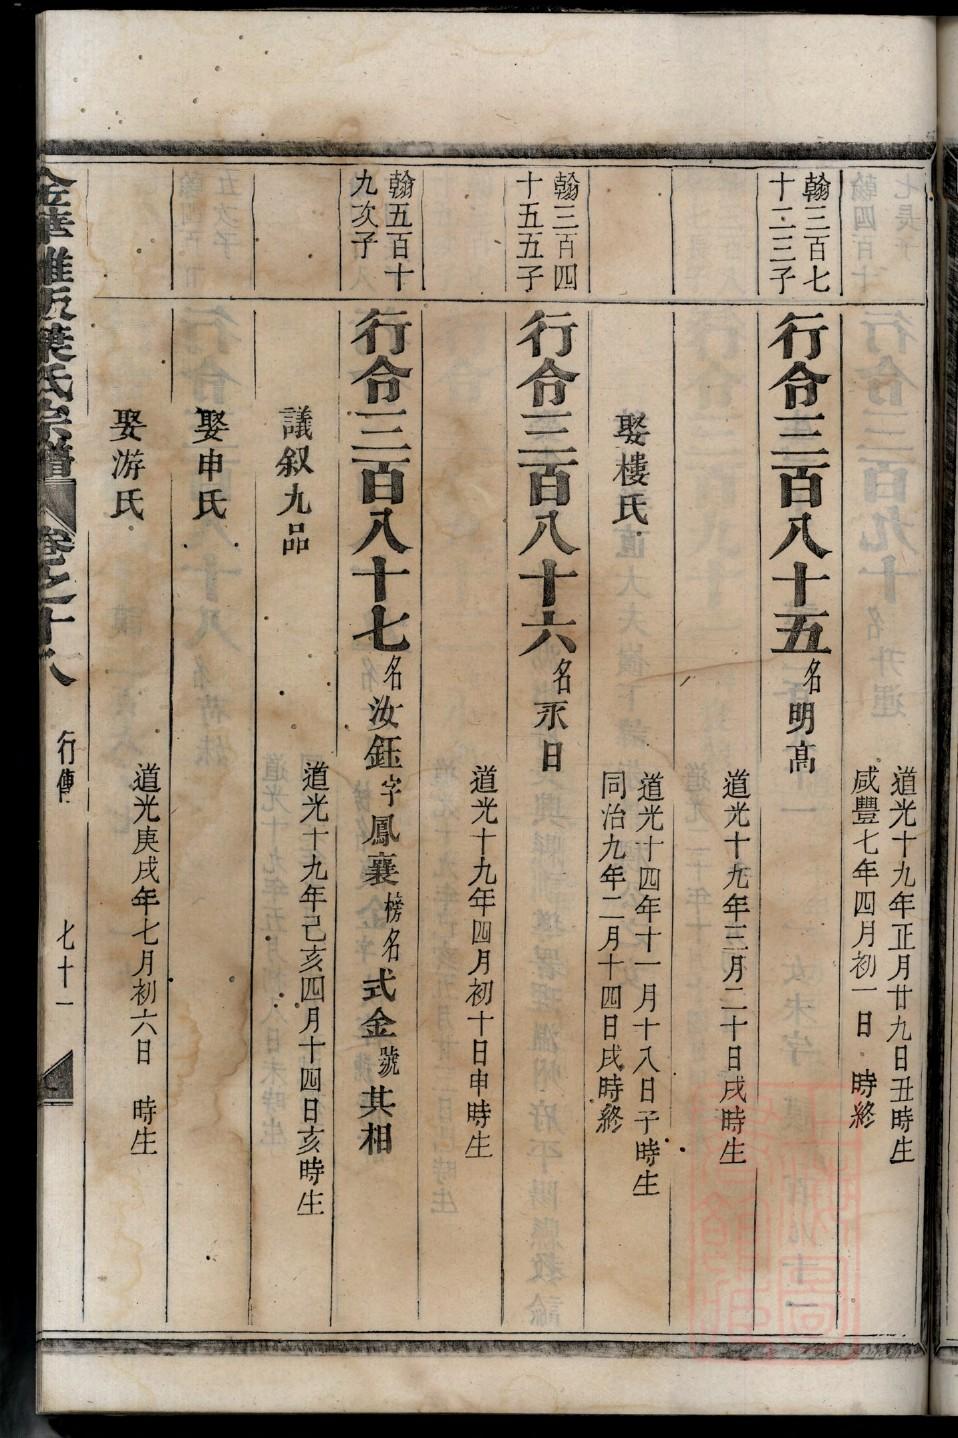 道光十九年正月廿九日丑時生
咸豐七年四月初一日　時終
翰三百七
十二三子
行合三百八十五名明高
道光十九年三月二十日戌時生
娶樓氏
道光十四年十一月十八日子時生
同治九年二月十四日戌時終
翰三百四
十五五子
行合三百八十六名永日
道光十九年四月初十日申時生
翰五百十
九次子
行合三百八十七名汝鈺字鳳襄榜名式金號其相
議叙九品
道光十九年己亥四月十四日亥時生
娶申氏
娶游氏
道光庚戌年七月初六日　時生
葉氏宗譜
卷之十八
行傳
七十一